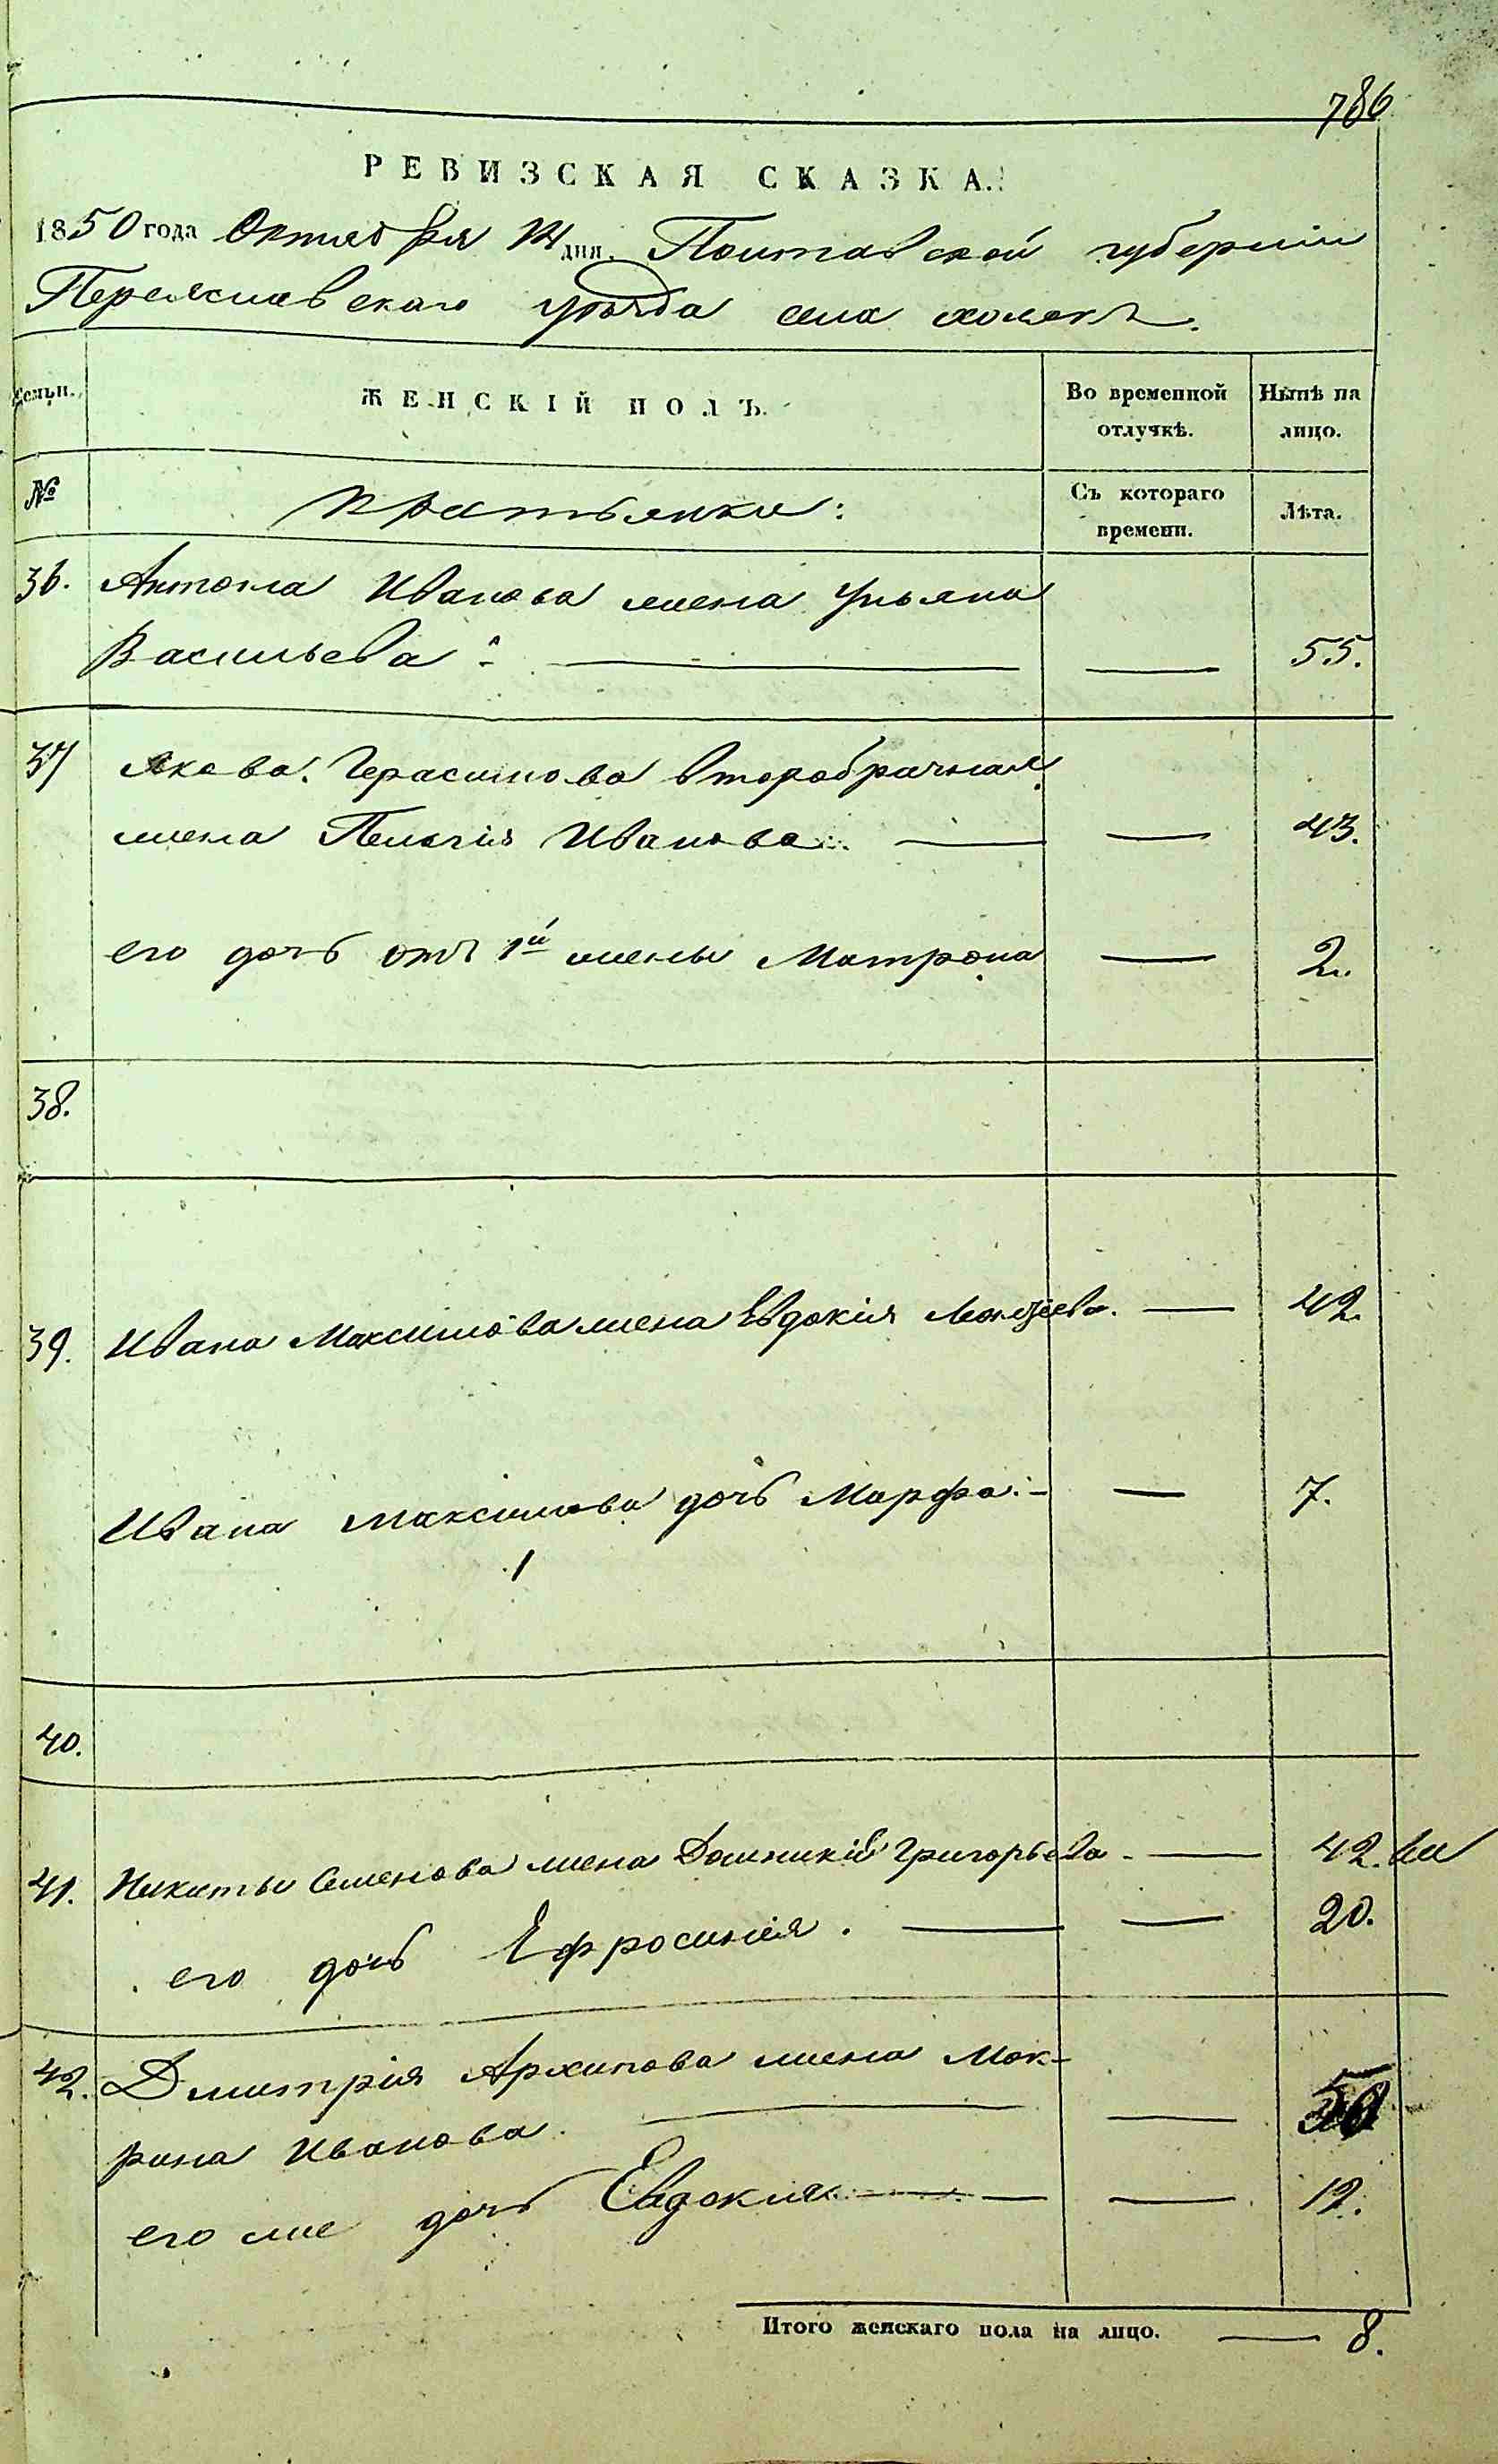 786
РЕВИЗСКАЯ СКАЗКА.
1850 года Октября 14 дня. Полтавской губерніи
Переяславскаго уѣзда села
Семьи. ЖЕНСКІЙ ПОЛЪ. Во временной отлучкѣ. Нынѣ на лицо.
№ Крестьянки: Съ котораго времени. Лѣта.
36. Антона Иванова жена Ульяна
Васильева — — 55.
37 Якова Герасимова второбрачная
жена Пелагія Иванова. — — 43.
его дочь отъ 1й жены Матрона — 2.
38.
39. Ивана Максимова жена Евдокія — 42.
Ивана Максимова дочь Марфа — 7.
40.
41. Никиты Семенова жена Домникія Григорьева — 42.
его дочь Ефросинія. — — 20.
42. Дмитрія Архипова жена Мок-
рина Иванова. — — 50
его же дочь Евдокия — — 12.
Итого женскаго пола на лицо. — 8.